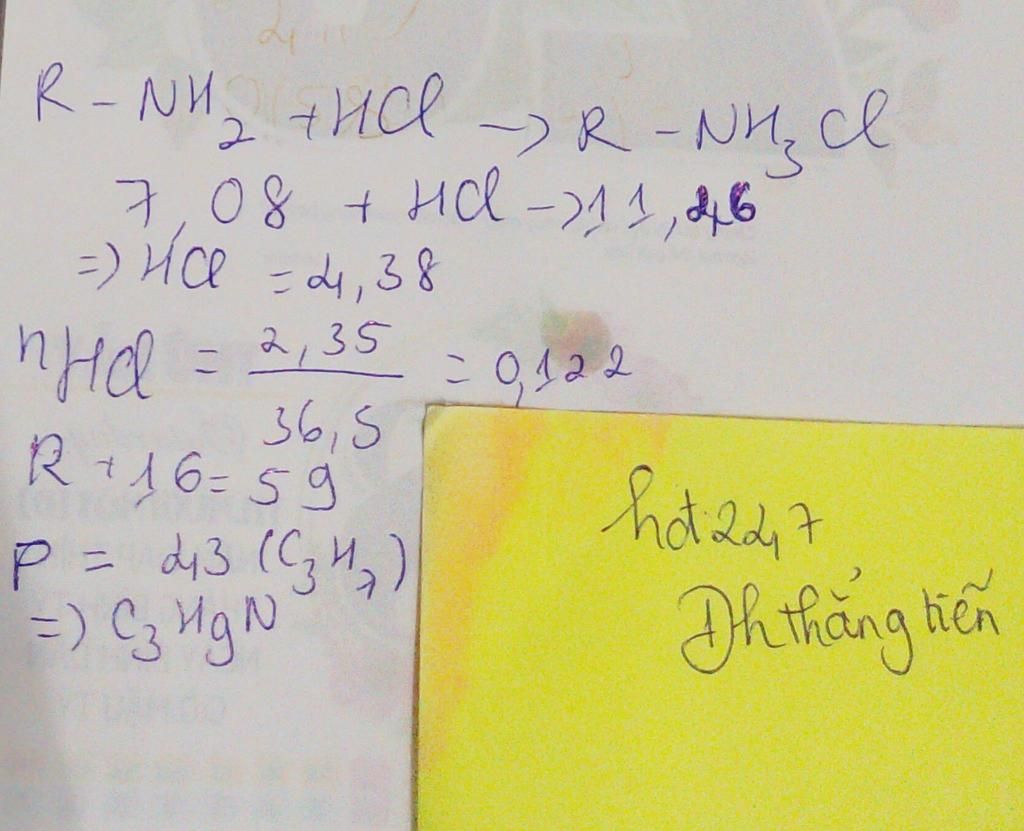 R - NH₂ + HCl -> R - NH₃Cl
7,08 + HCl -> 11,46
=> HCl = 4,38
nHCl = 2,35 / 36,5 = 0,122
R + 16 = 59
R = 43 (C₃H₇)
=> C₃H₉N
hot247
Đh thẳng tiến